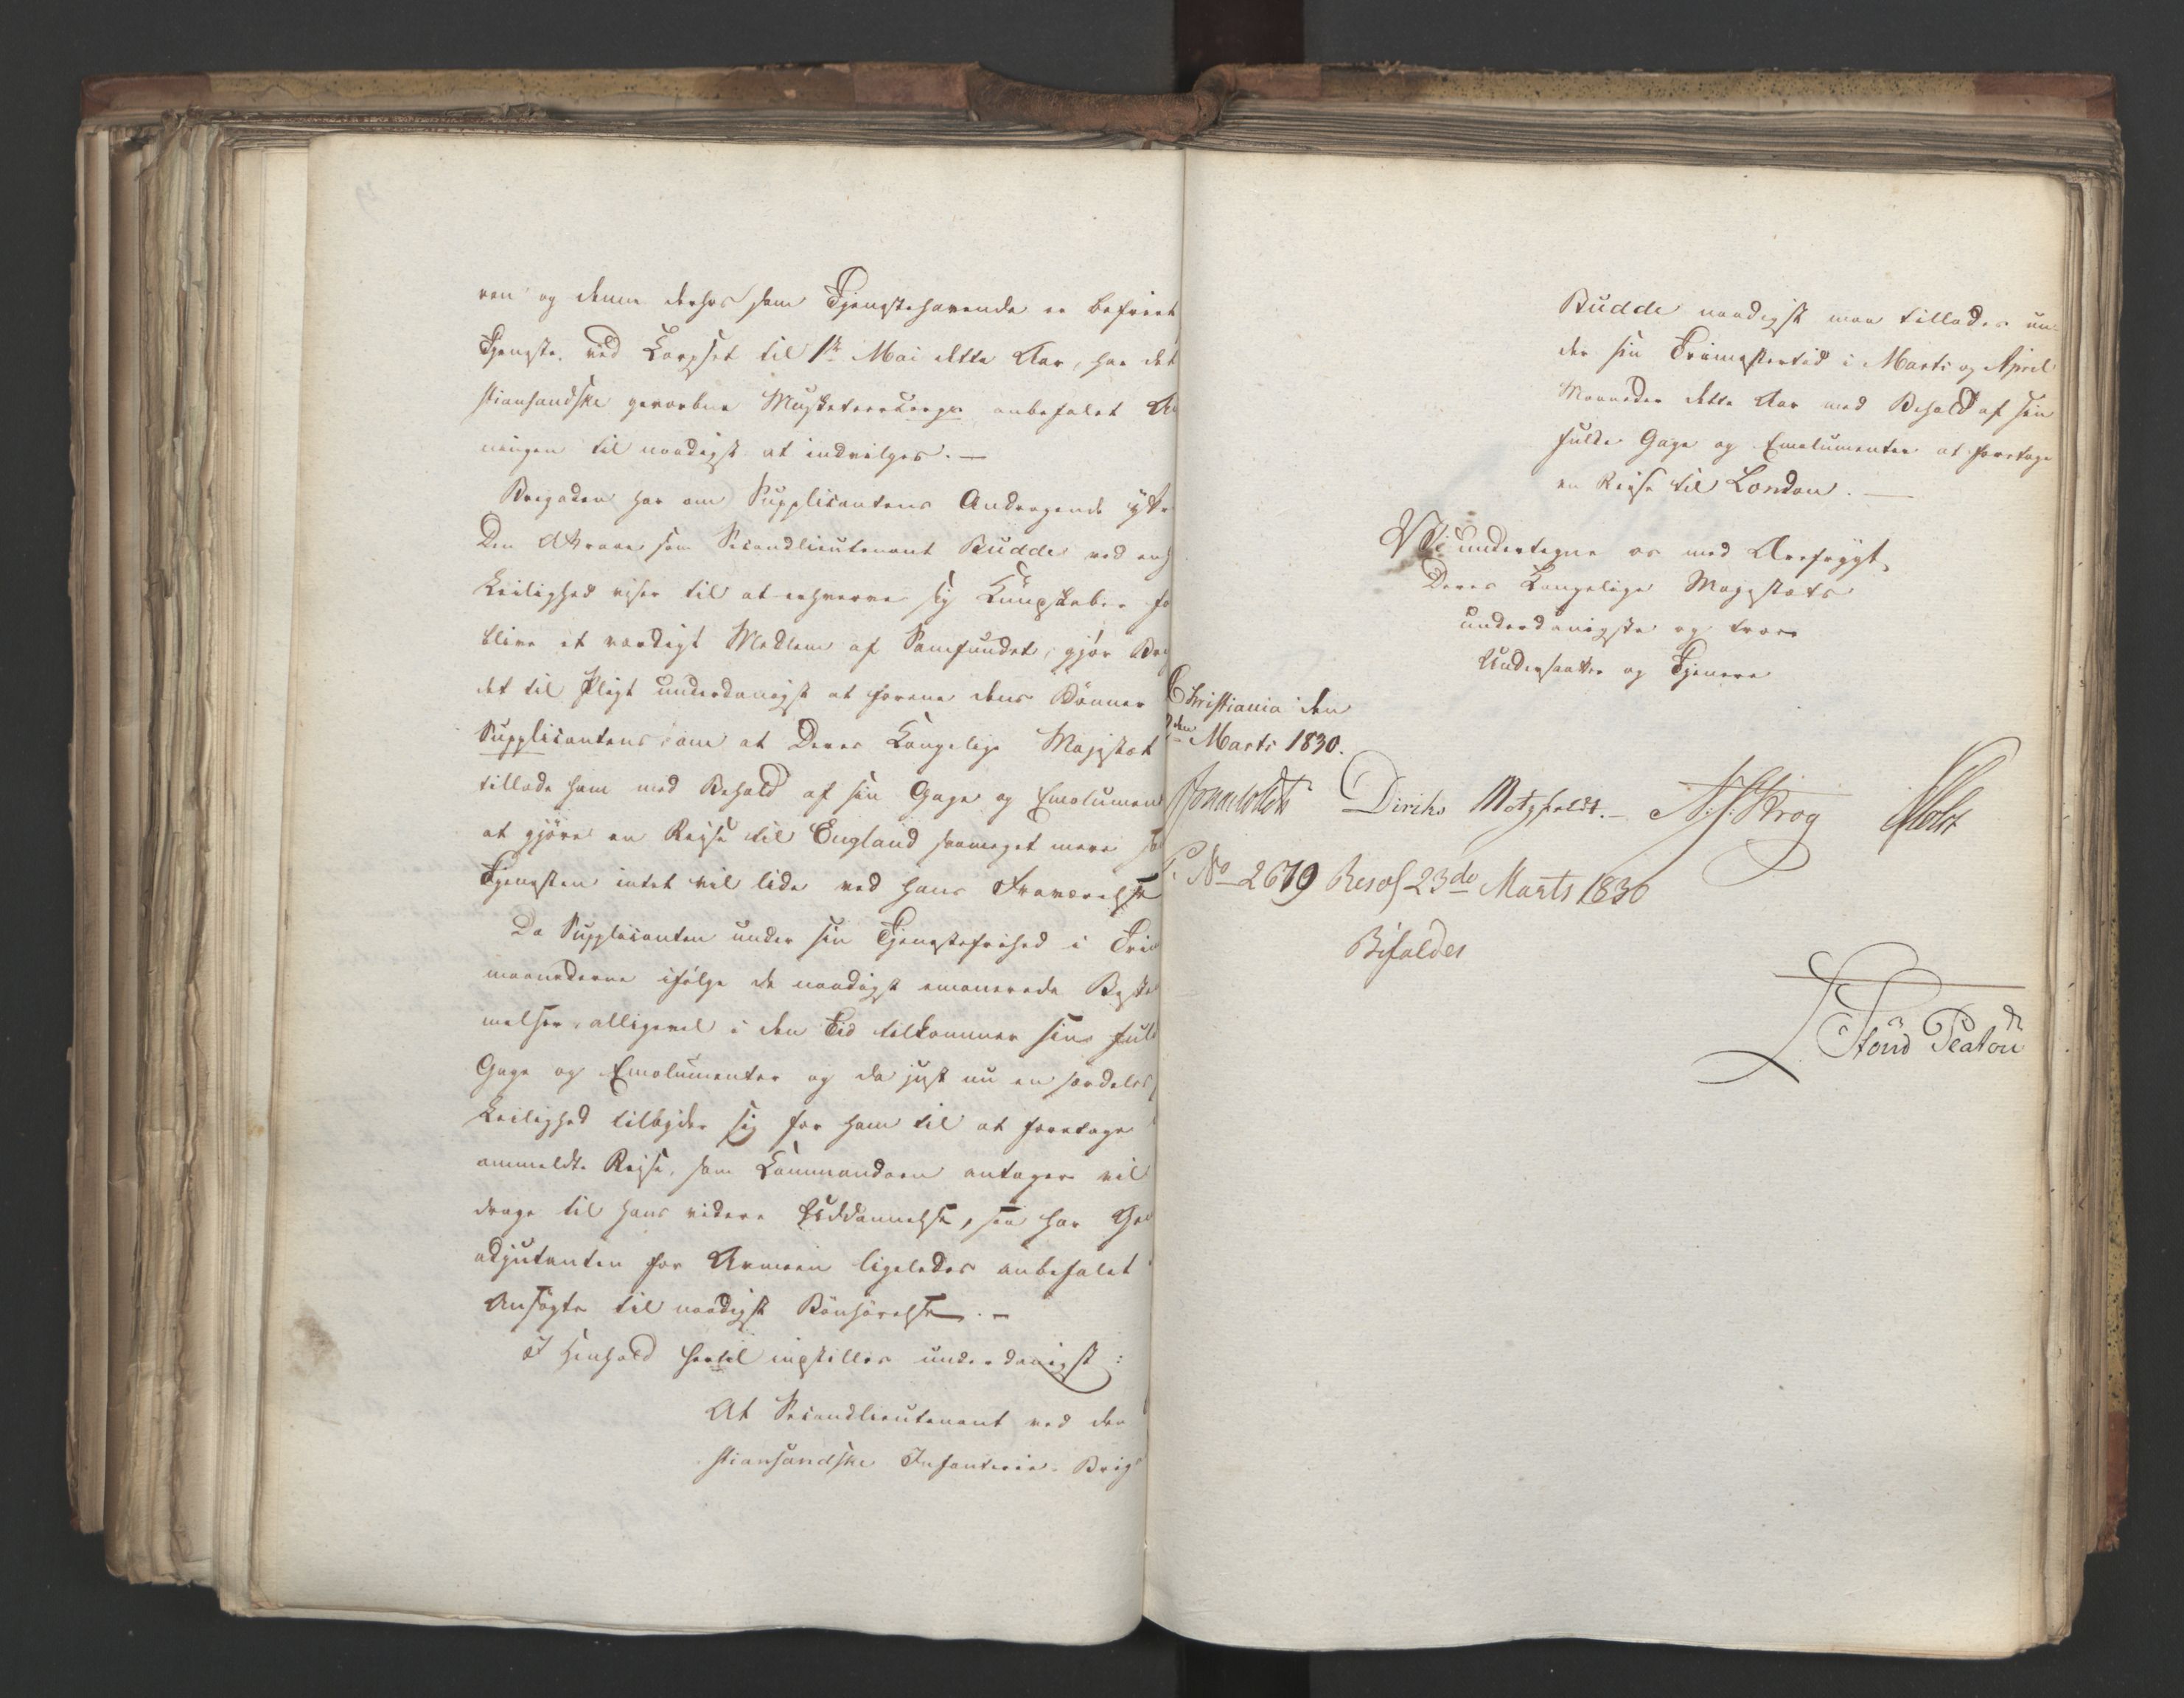 ren og denne derhos som Tjenstehavende er befriet
Tjeneste ved Corpset til 1ste Mai dette Aar, har det
stiansandske gevorbne Musketeercorps anbefalet An
ningen til naadigst at indvilges. —
Brigaden har om Supplicantens Andragende yttr
Den Attraae som Secondlieutenant Budde ved enh
Leilighed viser til at erhverve sig Kundskaber fo
blive et værdigt Medlem af Samfundet, gjør Brig
det til Pligt underdanigst at forene dens Bønner
Supplicantens, om at Deres Kongelige Majestæt
tillade ham med Behold af sin Gage og Emolumen
at gjøre en Reise til England saameget mere so
Tjenesten intet vil lide ved hans Fraværelse
Da Supplicanten under sin Tjenestefrihed i Fri
maanederne ifølge de naadigst emanerede Beste
melser alligevel i den Tid tilkommer sin fuld
Gage og Emolumenter og da just nu en særdeles
Leilighed tilbyder sig for ham til at foretage
ommeldte Rejse, som Commandoen antager vil
drage til hans videre Uddannelse, saa har Gen
adjutanten for Armeen ligeledes anbefalet
Ansøgte til naadigst Bønhørelse. —
I Henhold hertil indstilles underdanigst:
At Secondlieutenant ved den
stiansandske Infanterie-Brig
Budde naadigst maa tillades un-
der sin Frimestertid i Marts og April
Maaneder dette Aar med Behold af sin
fulde Gage og Emolumenter at foretage
en Reise til London. —
Vi undertegne os med Ærefrygt,
Deres Kongelige Majestæts
underdanigste og troe
Undersaatter og Tjenere
Christiania den
den Marts 1830.
Diriks Motzfeldt. N. J. Krog Holst
No 2679 Resol 23de Marts 1830
Bifaldes